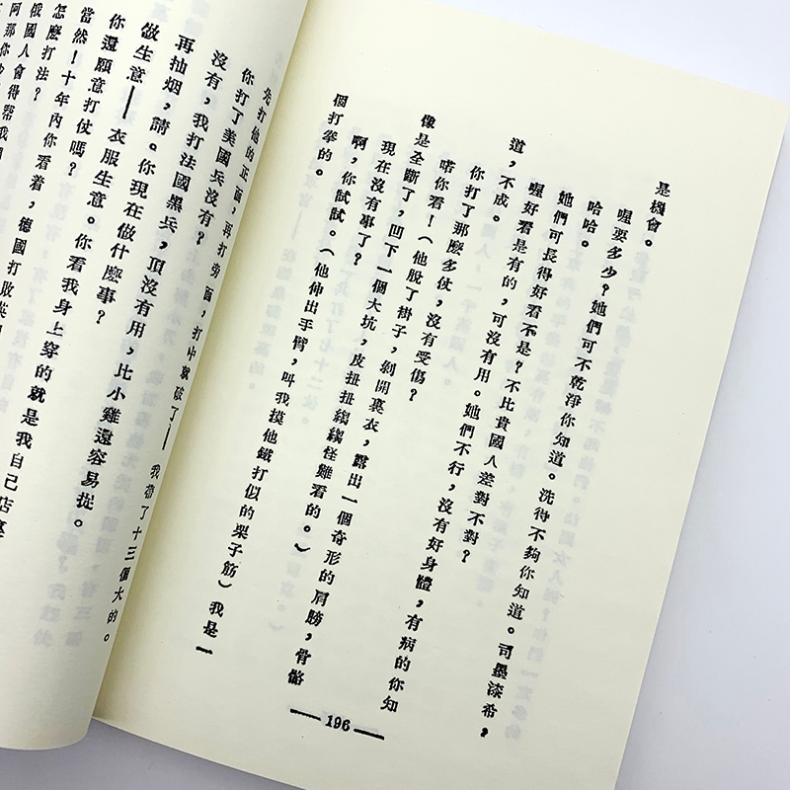 是機會。
喔要多少？她們可不乾淨你知道。洗得不夠你知道。司墨漆希，
哈哈。
她們可長得好看不是？不比貴國人差對不對？
喔好看是有的，可沒有用。她們不行，沒有好身體，有病的你知
道，不成。
你打了那麼多仗，沒有受傷？
喏你看！（他脫了褂子，剝開裏衣，露出一個奇形的肩膀，骨骼
像是全斷了，凹下一個大坑，皮扭扭縐縐怪難看的。）
現在沒有事了？
啊，你試試。（他伸出手臂，叫我摸他鐵打似的栗子筋）我是一
個打拳的。
196
先打他的正面，再打旁面，打中就破了——我帶了十三個大的。
你打了美國兵沒有？
沒有，我打法國黑兵，頂沒有用，比小雞還容易捉。
再抽烟，請。你現在做什麼事？
做生意——衣服生意。你看我身上穿的就是我自己店裏
你還願意打仗嗎？
當然！十年內你看着，德國打敗英
怎麼打法？
俄國人會得帮我們
阿那你